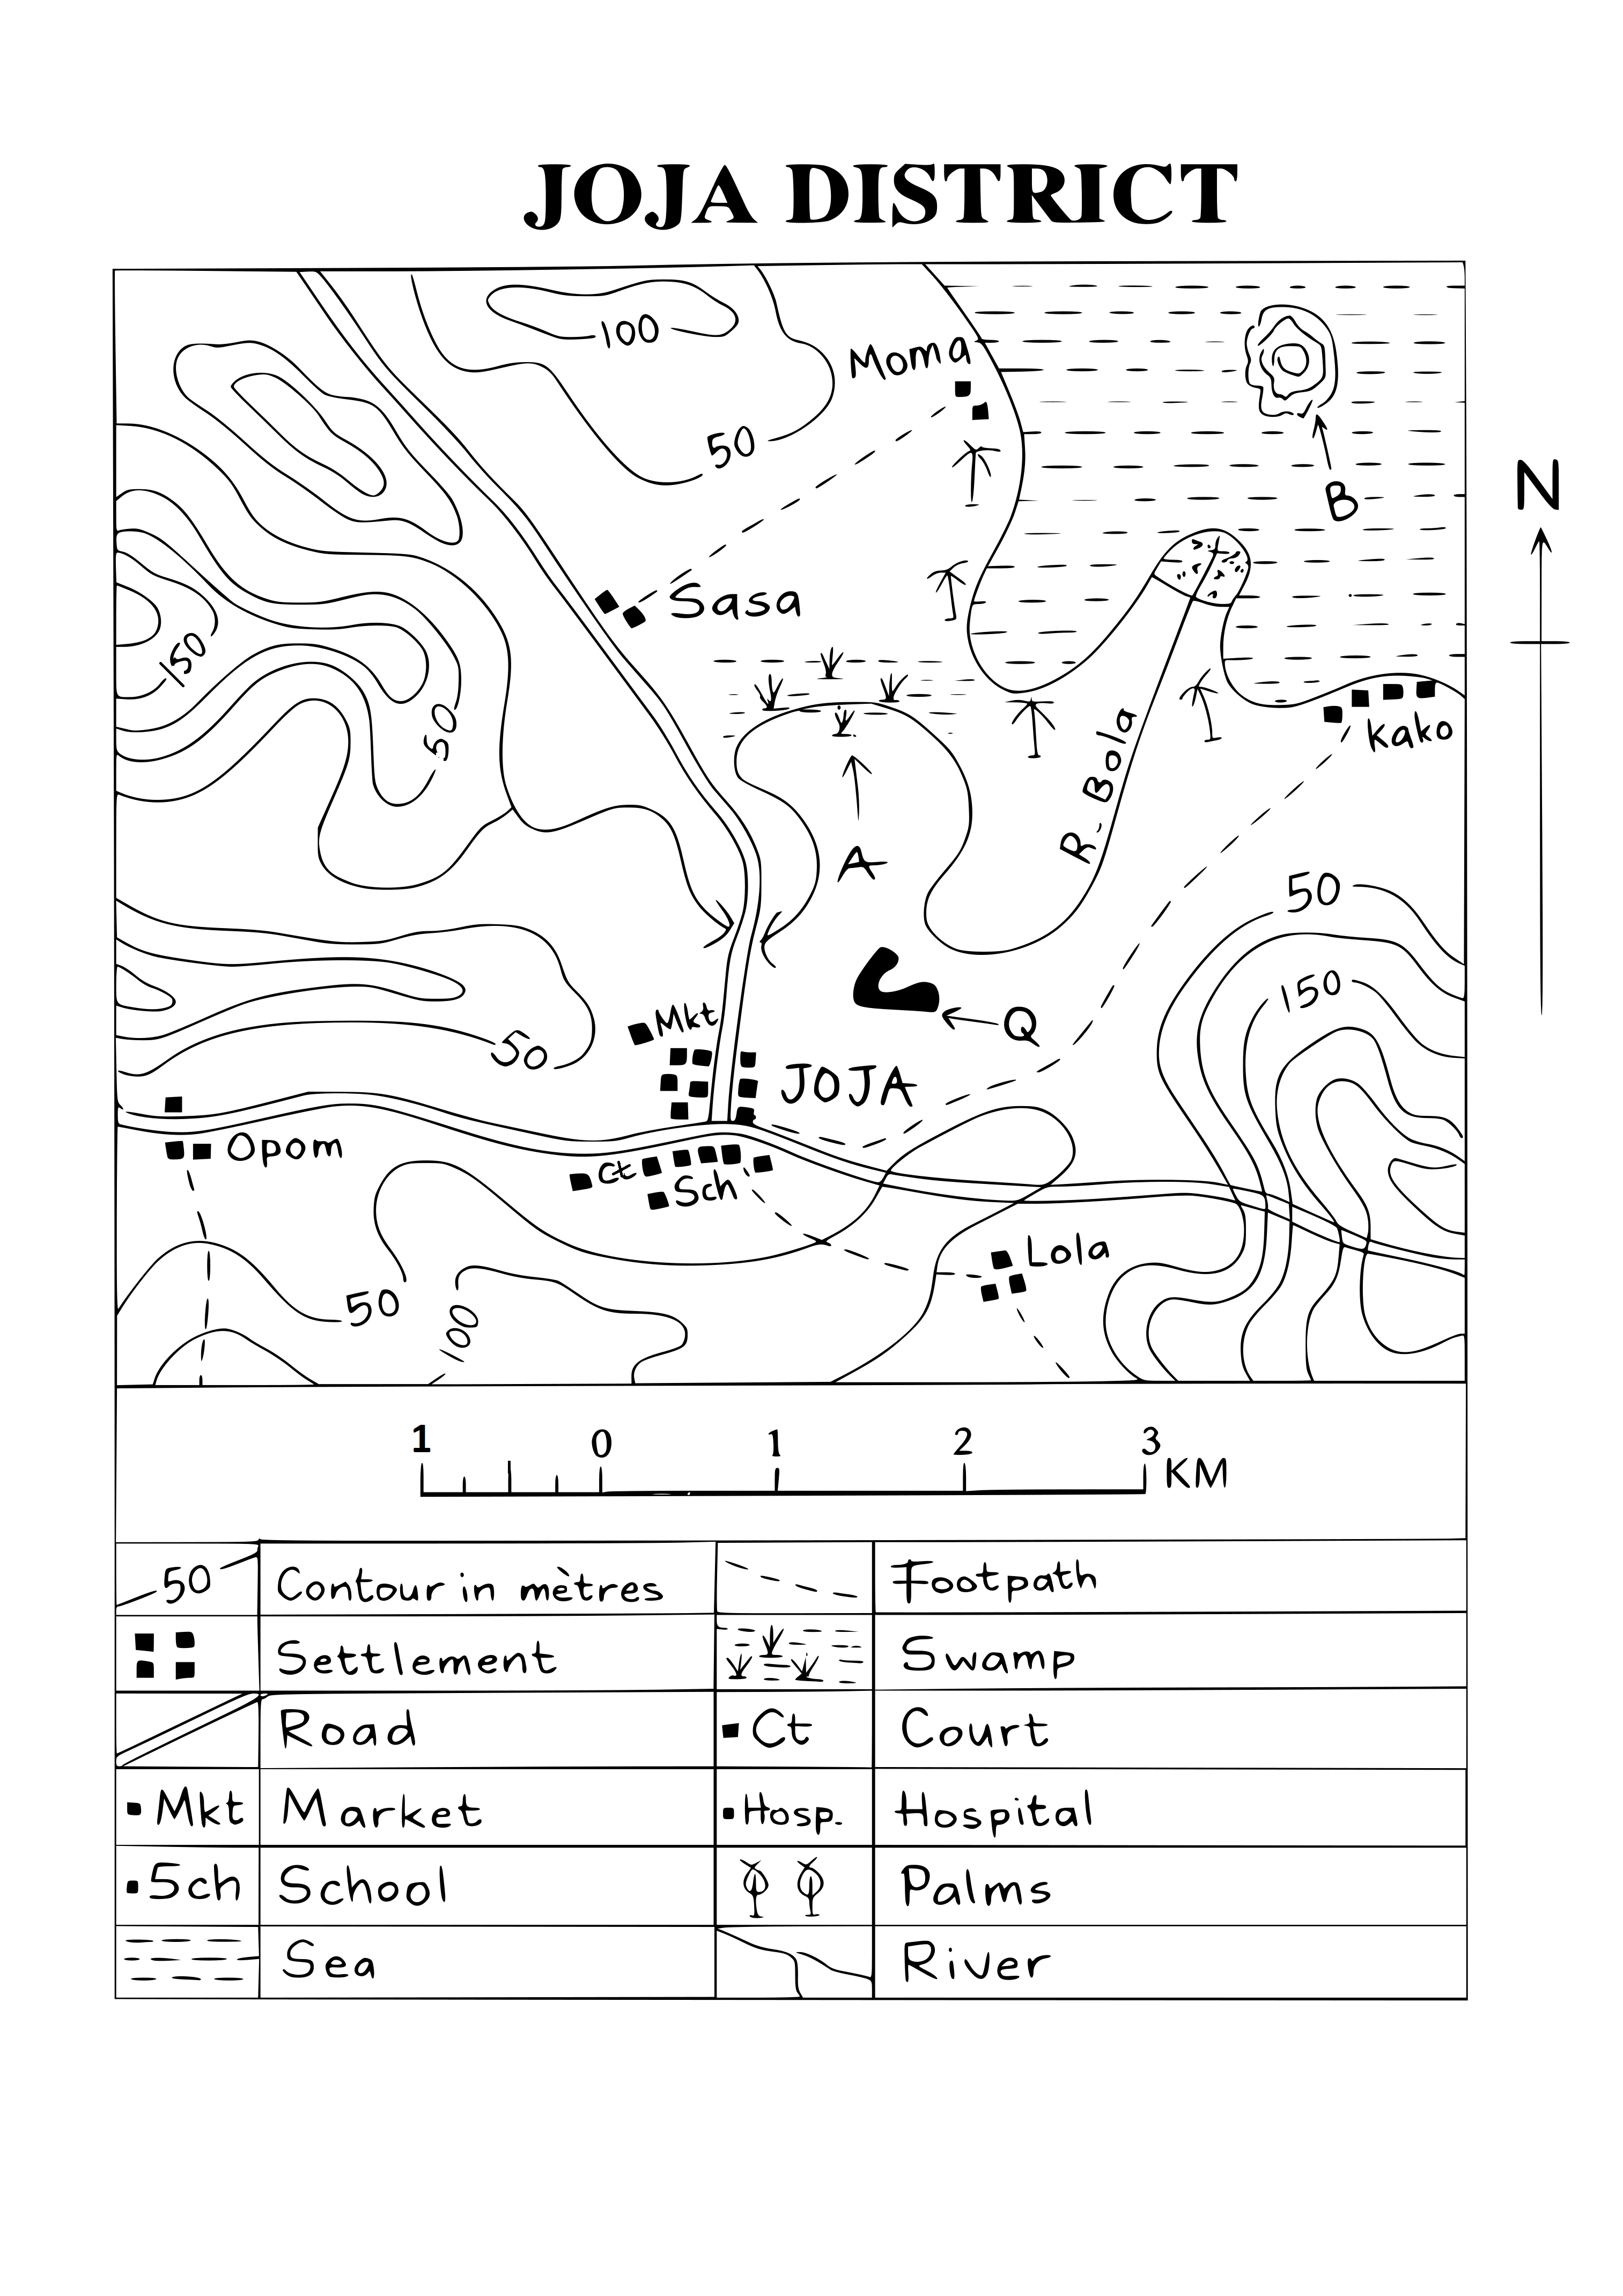 JOJA DISTRICT
100
Moma
50
B
N
Sasa
150
50
Kako
R. Bola
A
50
150
Mkt
Q
50
JOJA
Opom
Ct
Sch
Lola
50
100
1 0 1 2 3 KM
50 Contour in mètres Footpath
Settlement Swamp
Road Ct Court
Mkt Market Hosp. Hospital
Sch School Palms
Sea River